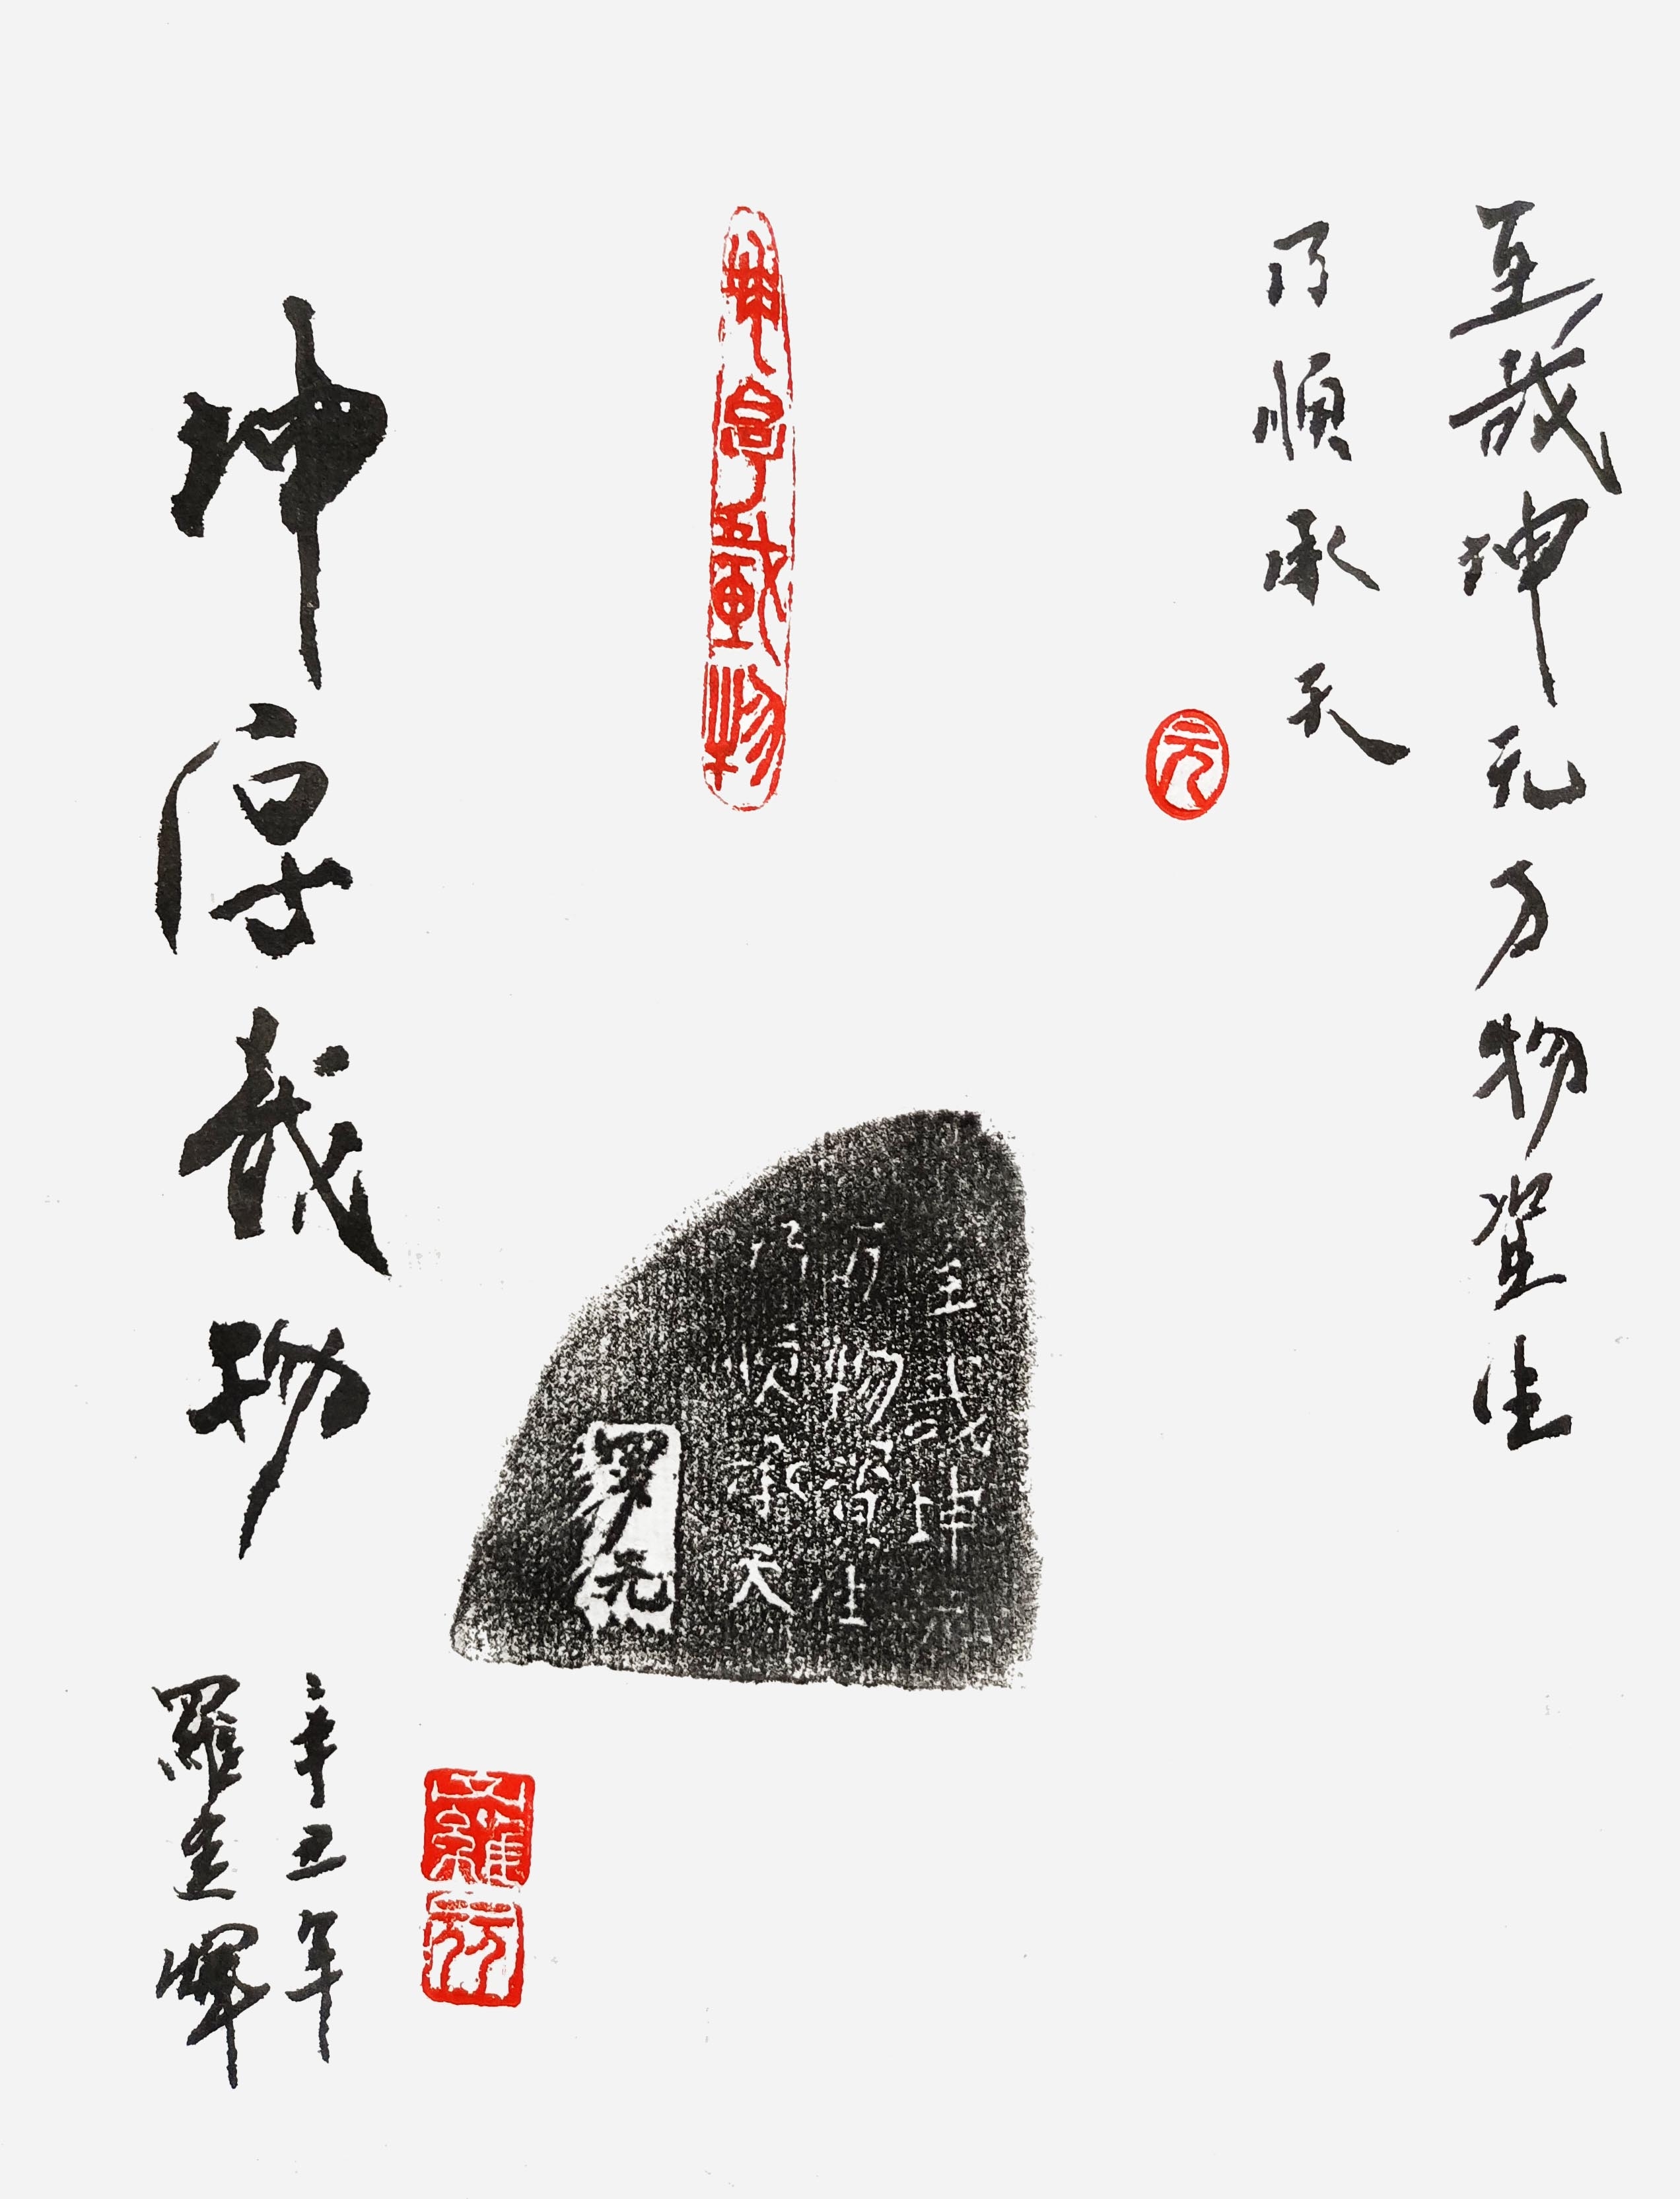 至哉坤元万物资生
乃顺承天
元
坤厚載物
至哉坤元
万物資生
乃顺承天
罗元
坤厚载物
辛丑年
羅
羅